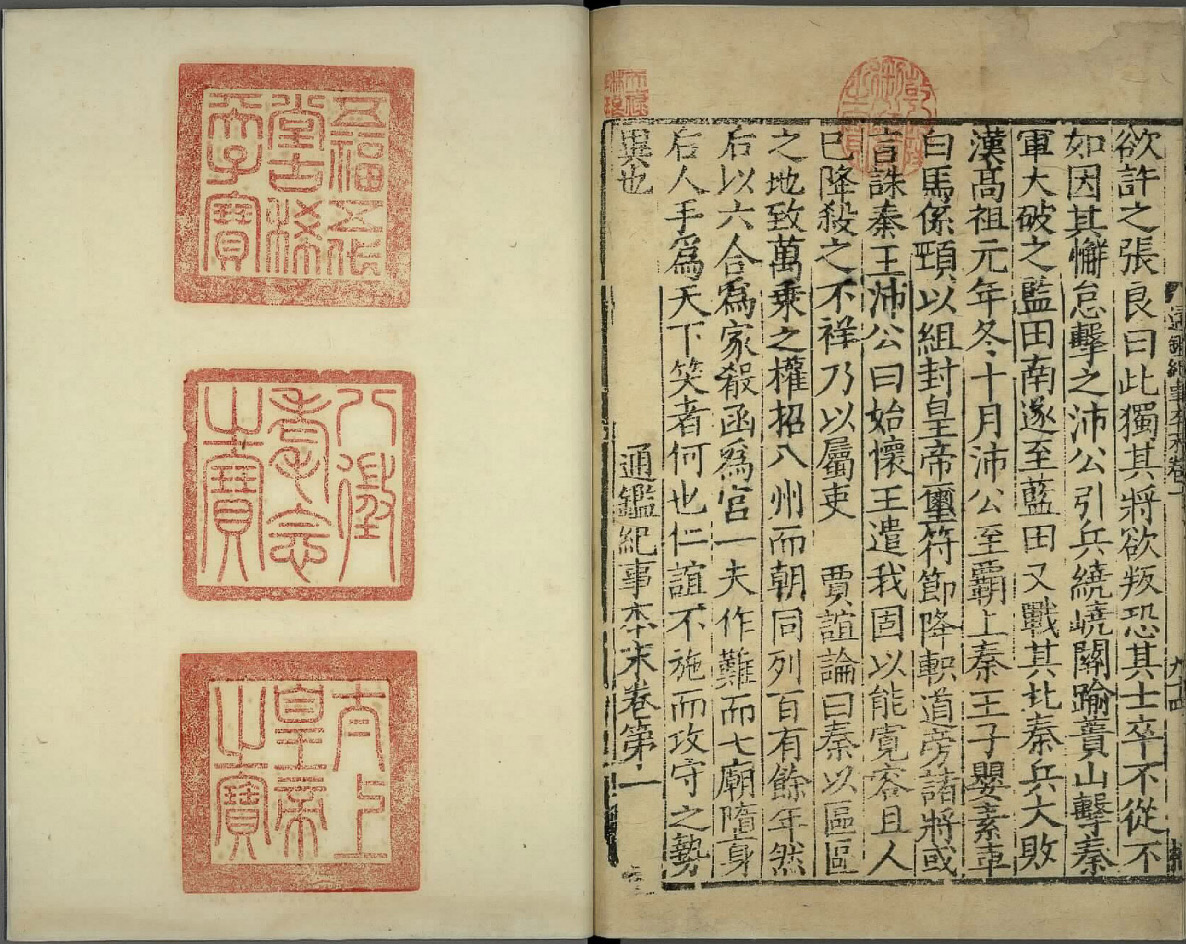 通鑑紀事本末卷一
欲許之張良曰此獨其將欲叛恐其士卒不從不
如因其懈怠擊之沛公引兵繞嶢關踰蕢山擊秦
軍大破之藍田南遂至藍田又戰其北秦兵大敗
漢髙祖元年冬十月沛公至霸上秦王子嬰素車
白馬係頸以組封皇帝璽符節降軹道旁諸將或
言誅秦王沛公曰始懷王遣我固以能寛容且人
已降殺之不祥乃以屬吏　賈誼論曰秦以區區
之地致萬乗之權招八州而朝同列百有餘年然
后以六合爲家殽函爲宫一夫作難而七廟隳身
死人手爲天下笑者何也仁誼不施而攻守之勢
異也
通鑑紀事本末卷第一
天祿
琳琅
五福五代
堂古稀
天子寶
八徵
耄念
之寶
太上
皇帝
之寶